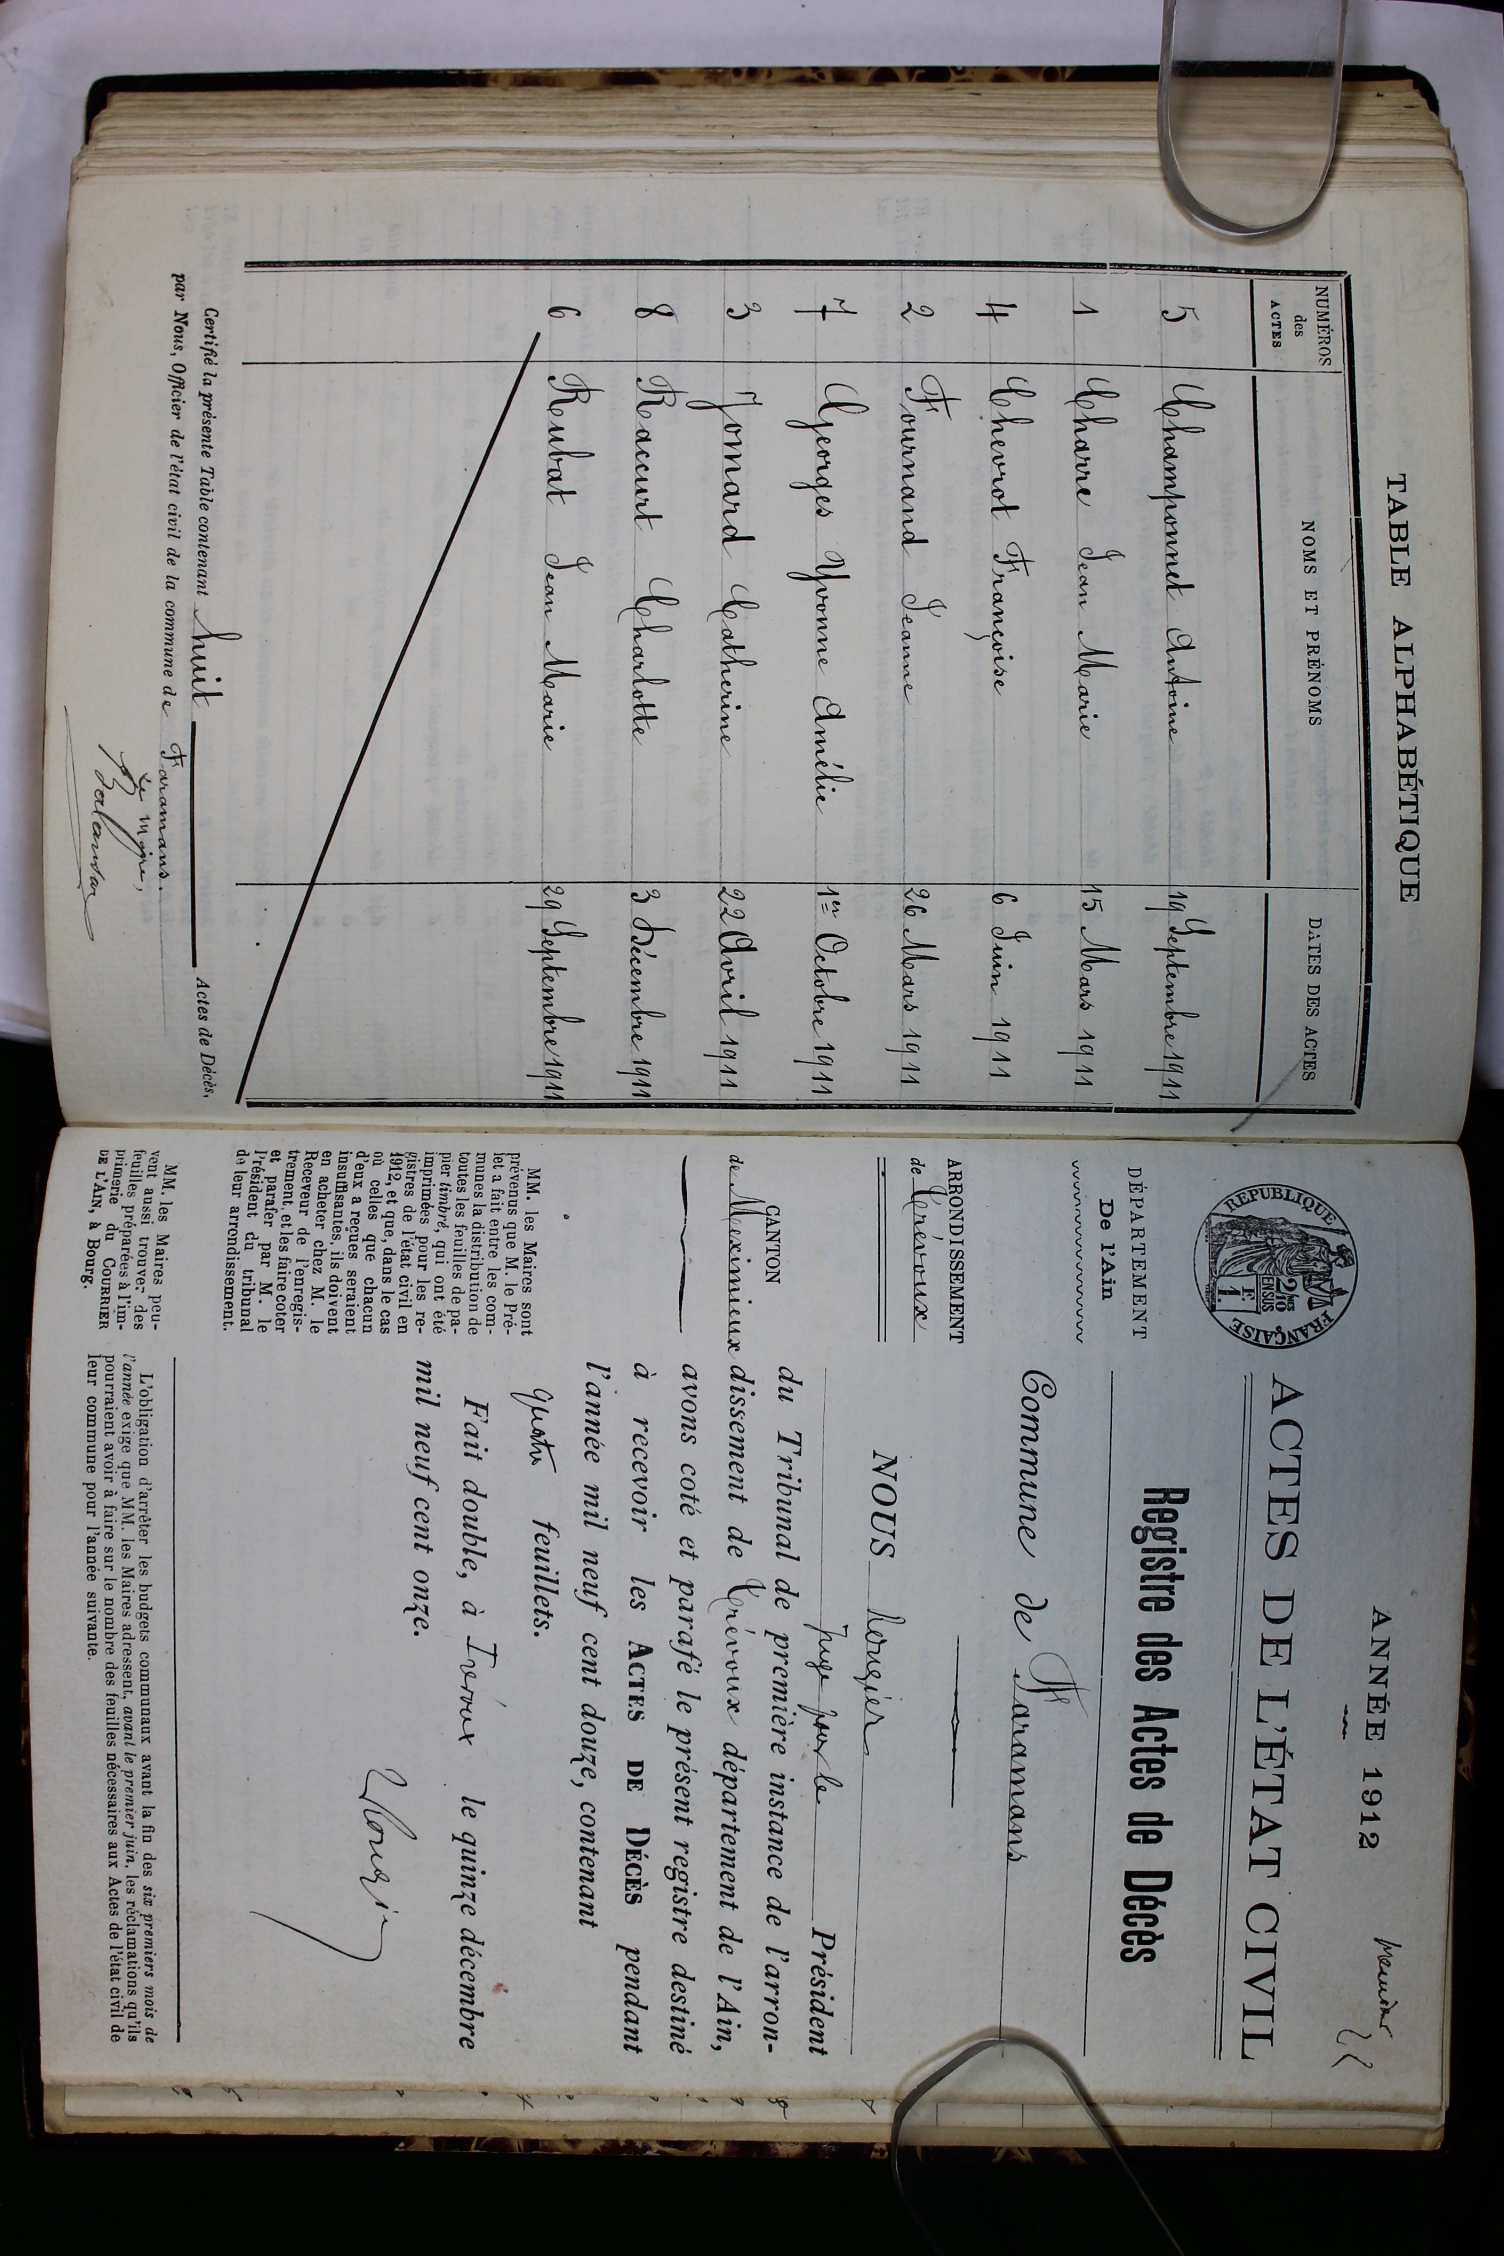 TABLE ALPHABÉTIQUE
NUMÉROS des ACTES NOMS ET PRÉNOMS DATES DES ACTES
5 Champonnet Antoine 19 Septembre 1911
1 Charre Jean Marie 15 Mars 1911
4 Chevrot Françoise 6 Juin 1911
2 Fournand Jeanne 26 Mars 1911
7 Georges Yvonne Amélie 1er Octobre 1911
3 Jomard Catherine 22 Avril 1911
8 Raccurt Charlotte 3 Décembre 1911
6 Rubat Jean Marie 29 Septembre 1911
Certifié la présente Table contenant huit Actes de Décès,
par Nous, Officier de l'état civil de la commune de Faramans.
Le Maire,
ANNÉE 1912
ACTES DE L'ÉTAT CIVIL
REPUBLIQUE FRANÇAISE
2/10mes EN SUS
1 F.
DÉPARTEMENT
De l'Ain
ARRONDISSEMENT
de Trévoux
CANTON
de Meximieux
MM. les Maires sont
prévenus que M. le Pré-
let a fait entre les com-
munes la distribution de
toutes les feuilles de pa-
pier timbré, qui ont été
imprimées pour les re-
gistres de l'état civil en
1912, et que, dans le cas
où celles que chacun
d'eux a reçues seraient
insuffisantes, ils doivent
en acheter chez M. le
Receveur de l'enregis-
trement, et les faire coter
et parafer par M. le
Président du tribunal
de leur arrondissement.
MM. les Maires peu-
vent aussi trouver des
feuilles préparées à l'im-
primerie du COURRIER
DE L'AIN, à Bourg.
Registre des Actes de Décès
Commune de Faramans
NOUS
Juge pour le Président
du Tribunal de première instance de l'arron-
dissement de Trévoux département de l'Ain,
avons coté et parafé le présent registre destiné
à recevoir les ACTES DE DÉCÈS pendant
l'année mil neuf cent douze, contenant
quatre feuillets.
Fait double, à Trévoux le quinze décembre
mil neuf cent onze.
L'obligation d'arrêter les budgets communaux avant la fin des six premiers mois de
l'année exige que MM. les Maires adressent, avant le premier juin, les réclamations qu'ils
pourraient avoir à faire sur le nombre des feuilles nécessaires aux Actes de l'état civil de
leur commune pour l'année suivante.